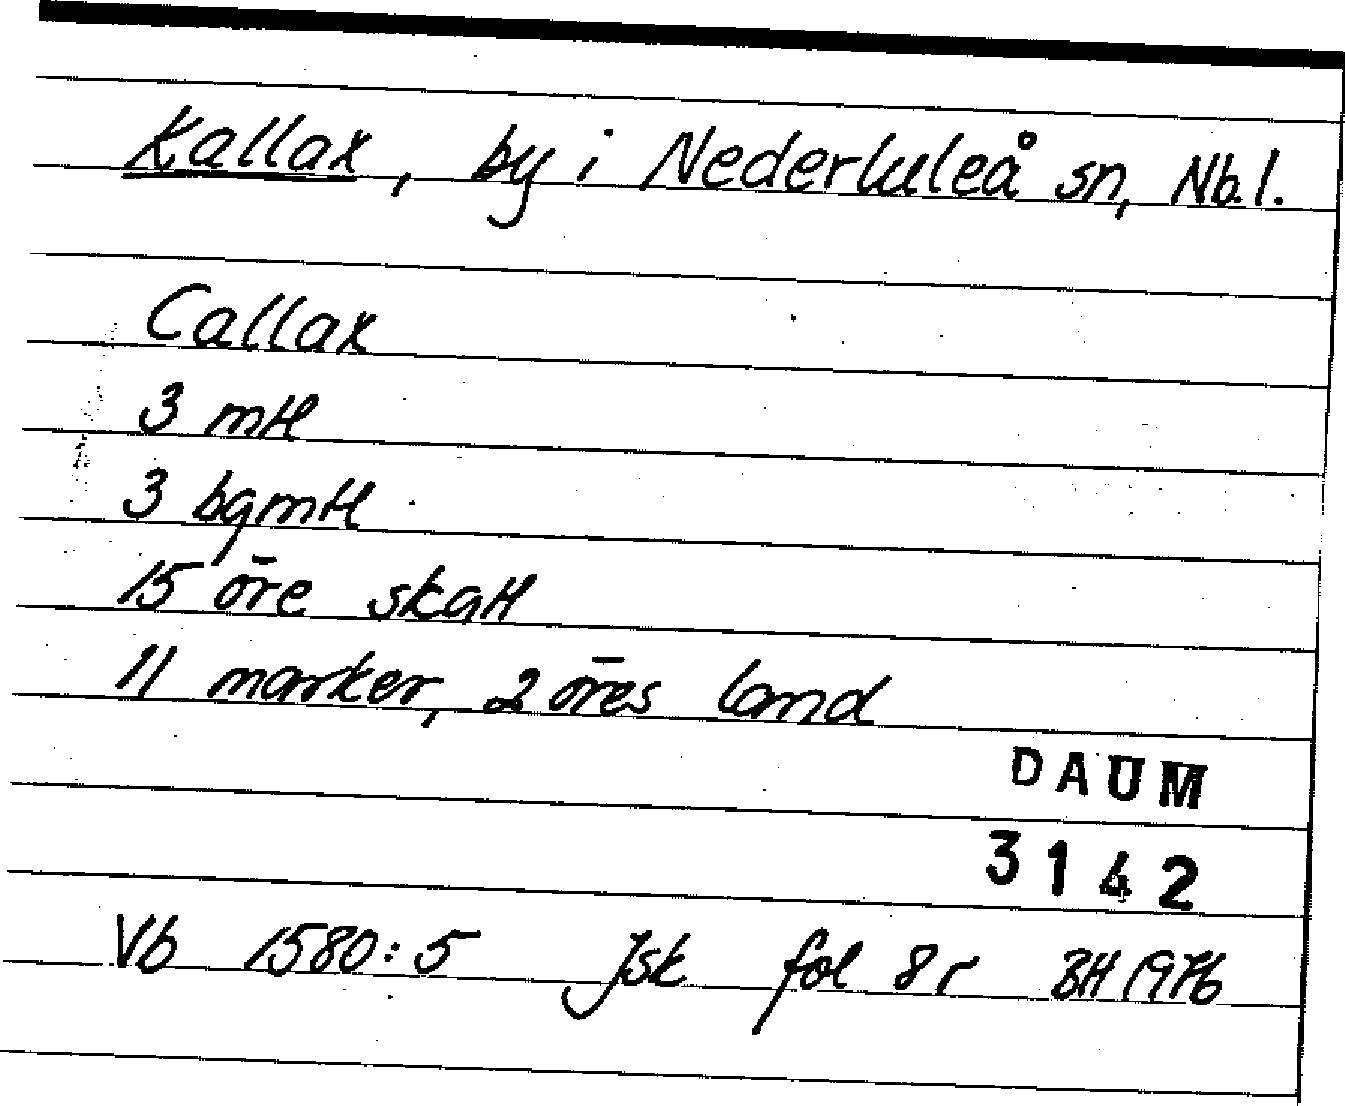 Kallax, by i Nederluleå sn, Nb.l.
Callax
3 mtl
3 bgmtl
15 öre skatt
11 marker, 2 öres land
DAUM
3142
Vb 1580:5 Jsk fol 8r BH 1976